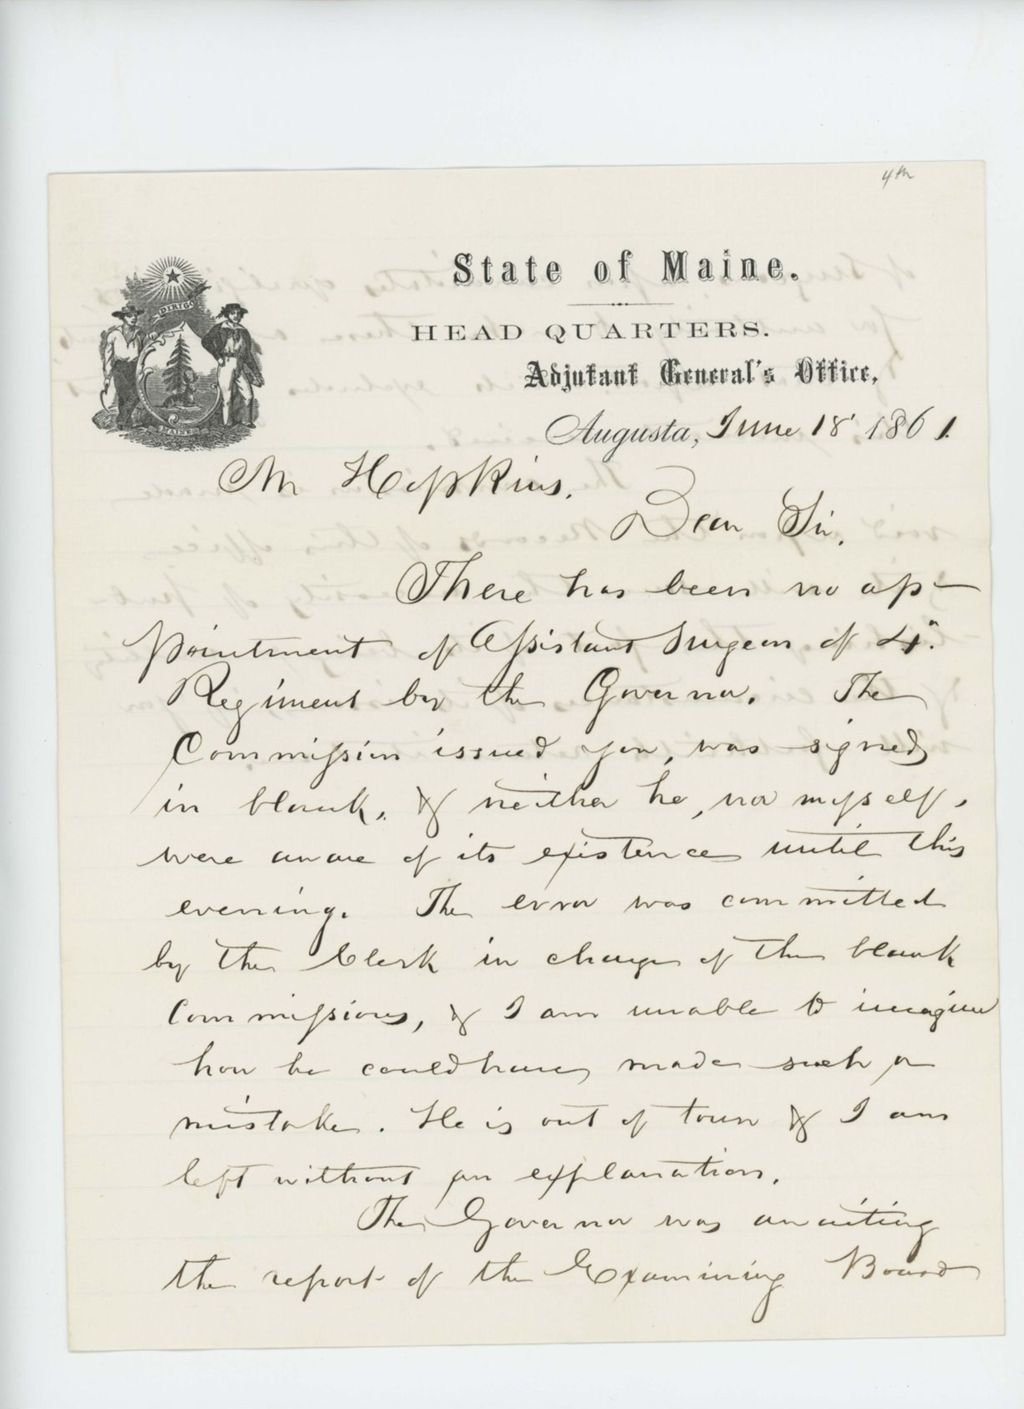 4th
DIRIGO
MAINE
State of Maine.
HEAD QUARTERS.
Adjutant General's Office,
Augusta, June 18' 1861.
Mr Hopkins.
Dear Sir,
There has been no ap-
pointment of Assistant Surgeon of 4th
Regiment by the Governor. The
Commission issued you, was signed
in blank, & neither he, nor myself,
were aware of its existence until this
evening. The error was committed
by the Clerk in charge of the blank
Commissions, & I am unable to imagine
how he could have made such a
mistake. He is out of town & I am
left without an explanation.
The Governor was awaiting
the report of the Examining Board